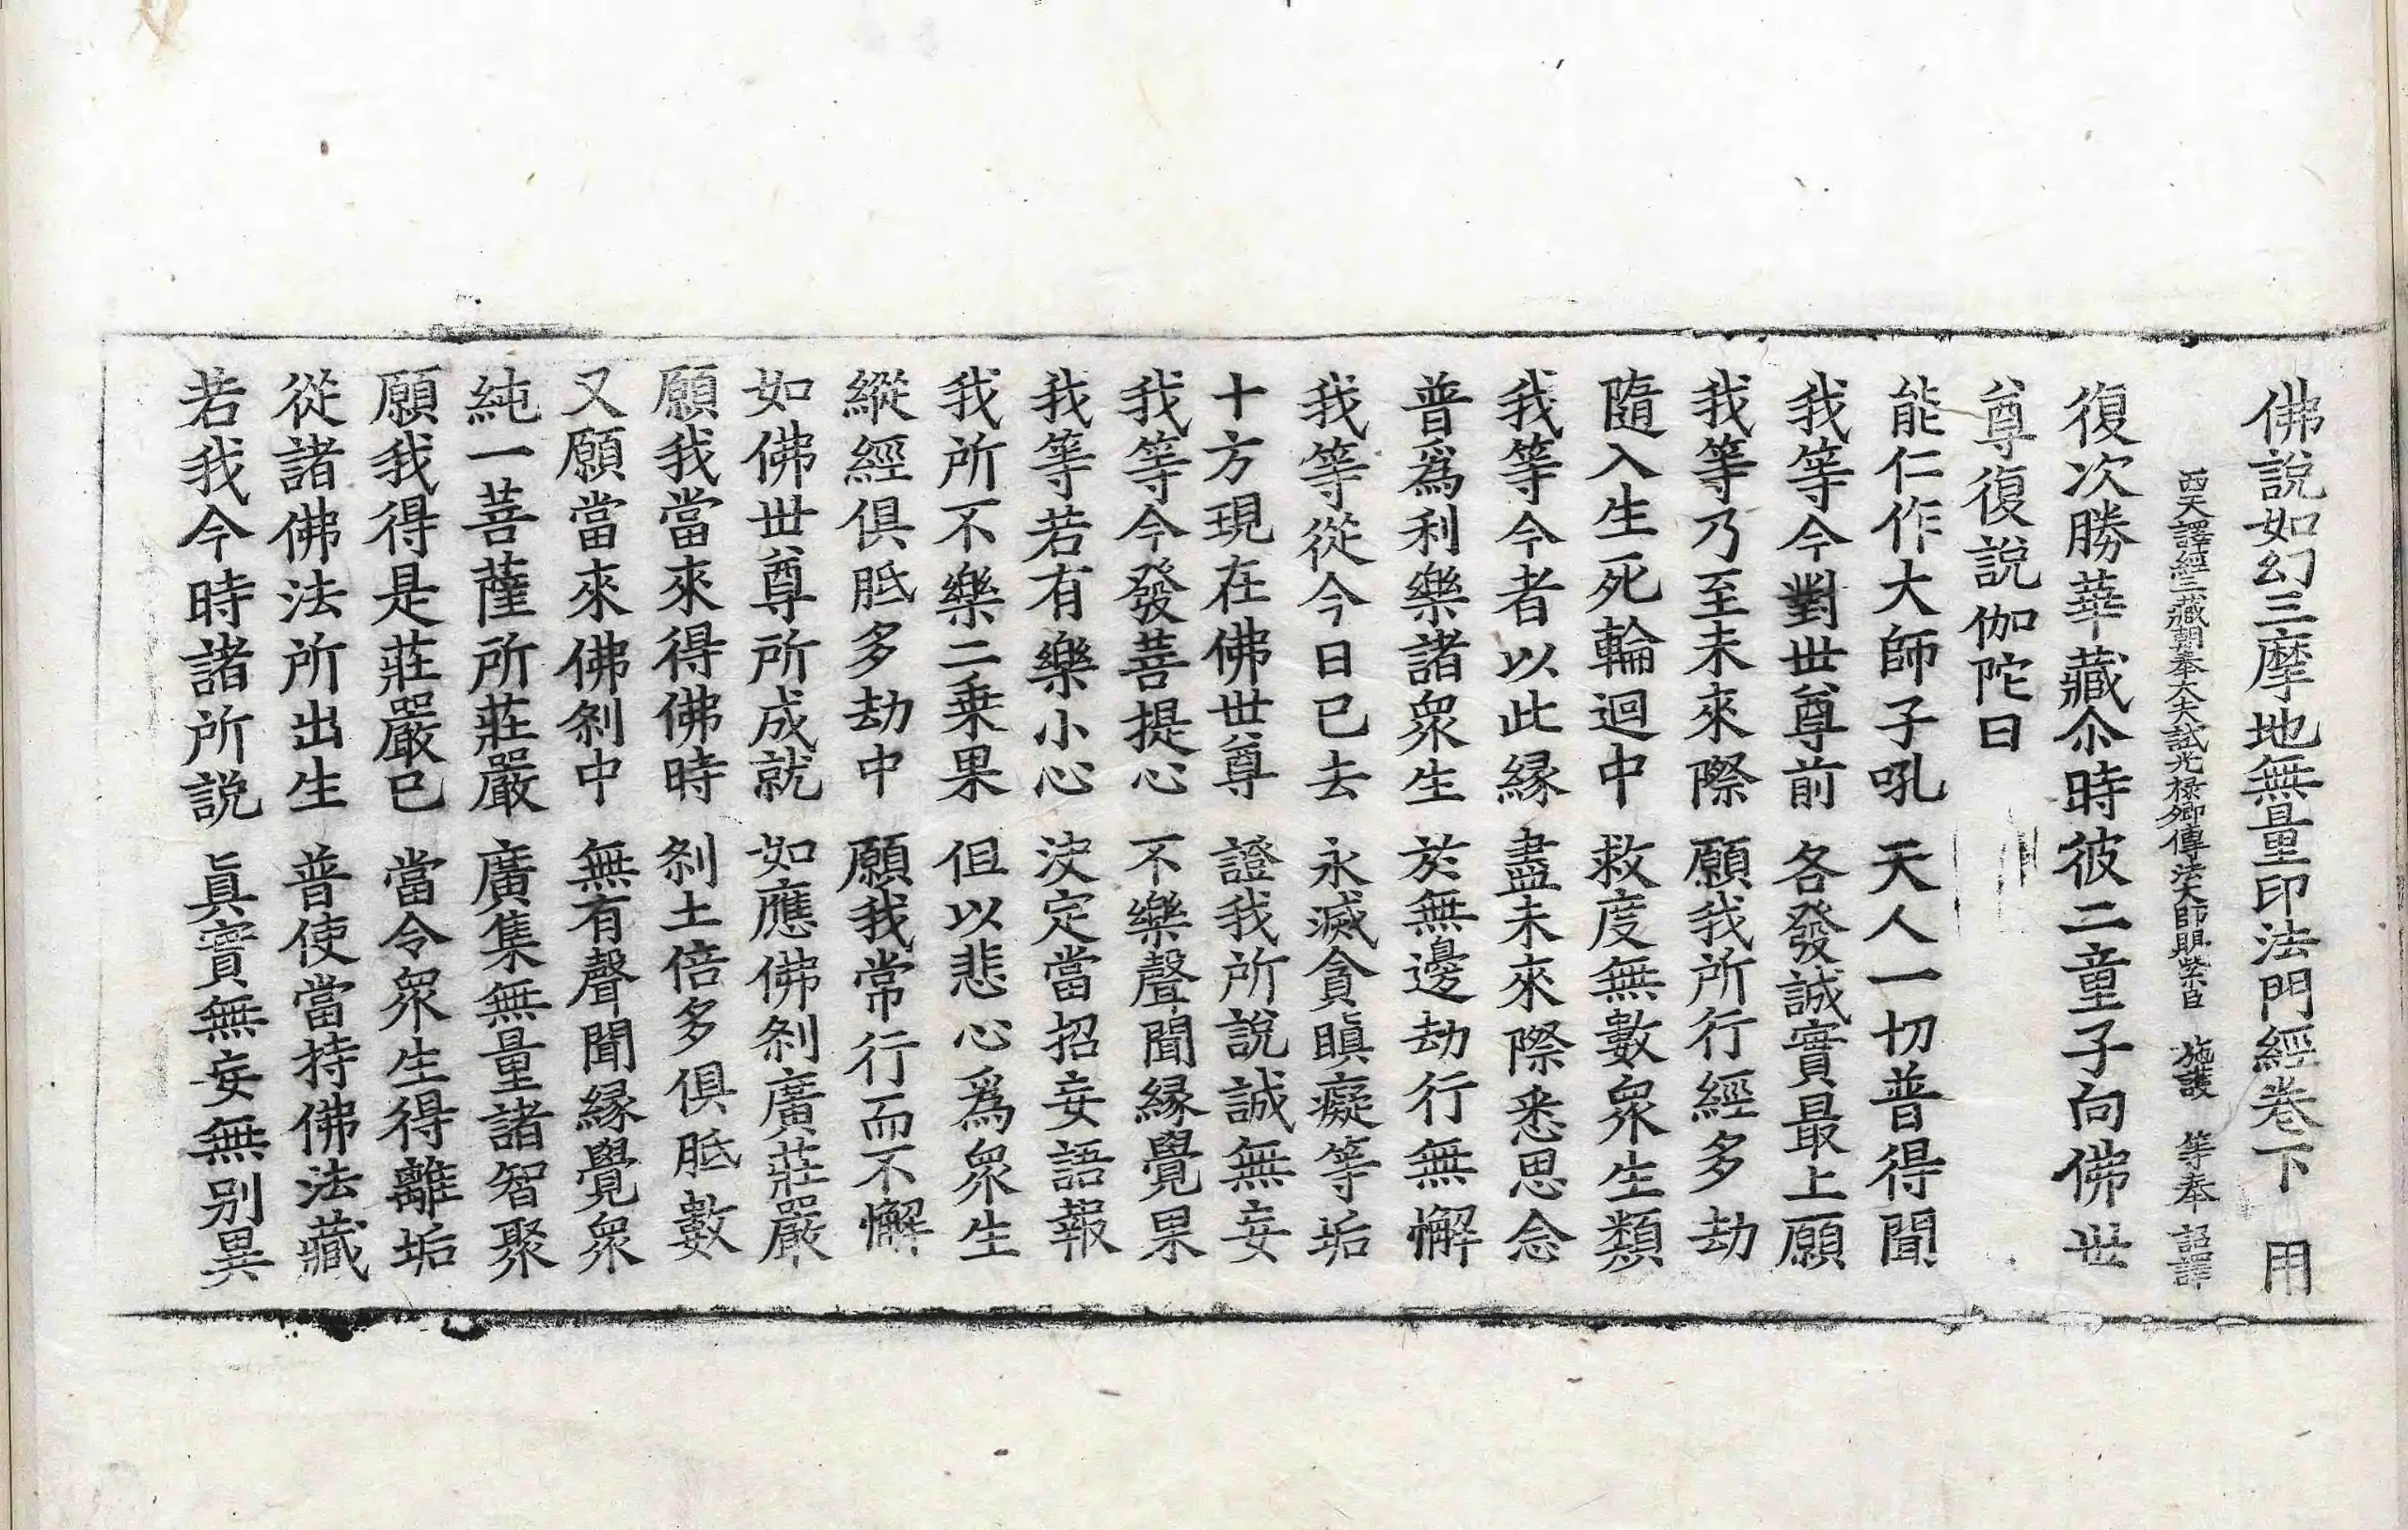 佛說如幻三摩地無量印法門經卷下 用
西天譯經三藏朝奉大夫試光禄卿傳法大師賜紫臣 施護 等奉 詔譯
復次勝華藏尒時彼二童子向佛世
尊復說伽陀曰
能仁作大師子吼 天人一切普得聞
我等今對世尊前 各發誠實最上願
我等乃至未來際 願我所行經多劫
隨入生死輪迴中 救度無數衆生類
我等今者以此縁 盡未來際悉思念
普爲利樂諸衆生 於無邊劫行無懈
我等從今日已去 永滅貪瞋癡等垢
十方現在佛世尊 證我所說誠無妄
我等今發菩提心 不樂聲聞縁覺果
我等若有樂小心 决定當招妄語報
我所不樂二乗果 但以悲心爲衆生
縱經俱胝多劫中 願我常行而不懈
如佛世尊所成就 如應佛刹廣莊嚴
願我當來得佛時 刹土倍多俱胝數
又願當來佛刹中 無有聲聞縁覺衆
純一菩薩所莊嚴 廣集無量諸智聚
願我得是莊嚴已 當令衆生得離垢
從諸佛法所出生 普使當持佛法藏
若我今時諸所說 眞實無妄無別異